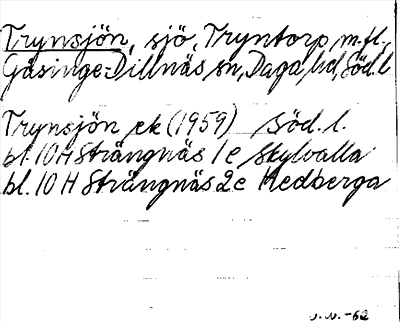 Trynsjön, sjö, Tryntorp m.fl.,
Gåsinge-Dillnäs sn, Daga hd, Söd. l.
Trynsjön ek (1959) Söd. l.
bl. 10 H Strängnäs 1 e Skylvalla
bl. 10 H Strängnäs 2 e Hedberga
-62